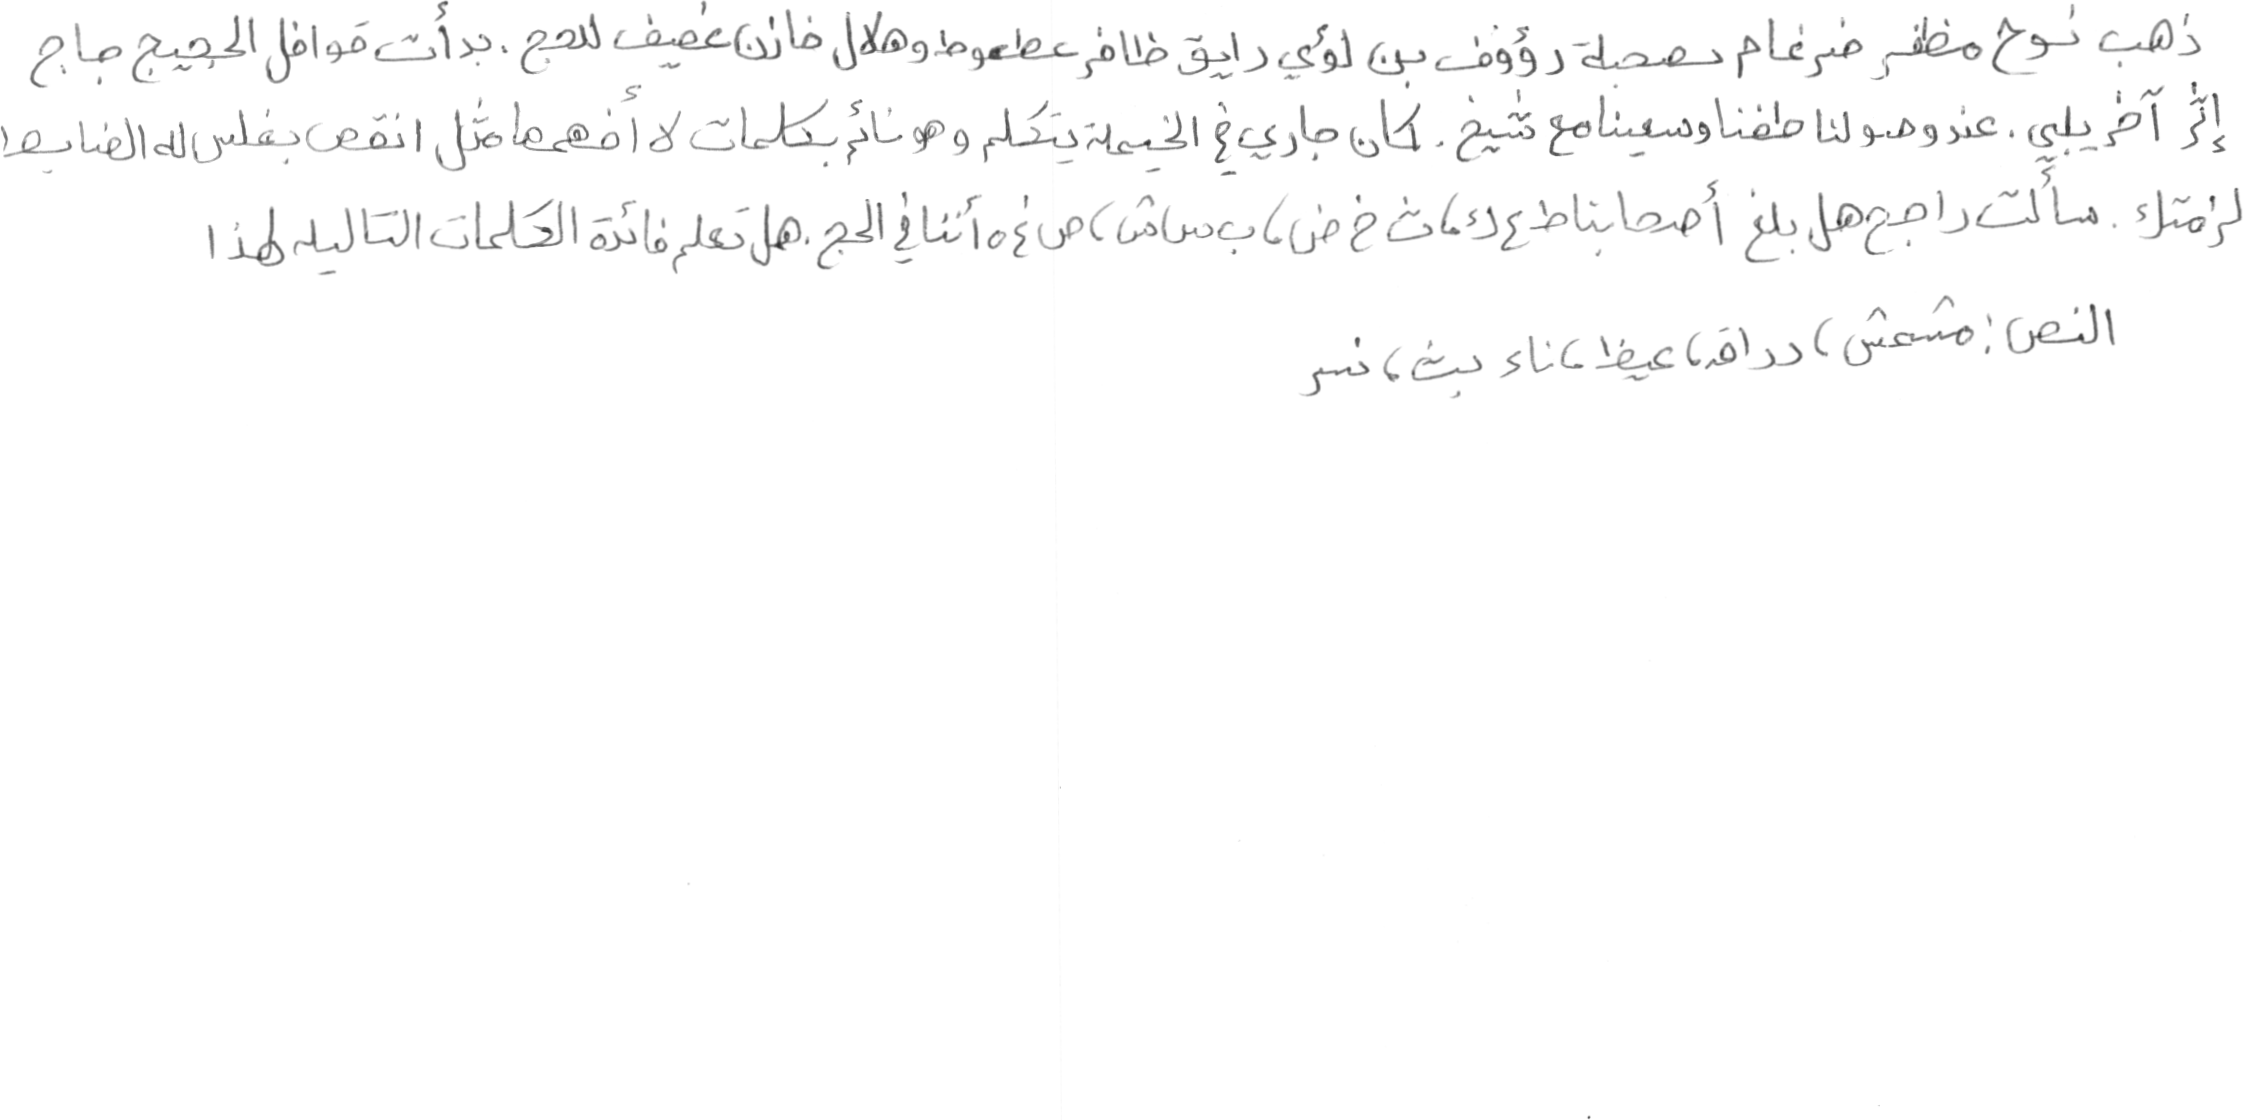 ذهب نوح مظفر ضرغام بصحبة رؤوف بن لؤي رايق ظافر عطعوط وهلال خازن غضيف للحج . بدأت قوافل الحجيج حاج
إثر آخر يلبي . عند وصولنا طفنا وسعينا مع شيخ . كان جاري في الخيمة يتكلم وهو نائم بكلمات لا أفهمها مثل انقص بغلس له الضابط
لزمتك . سألت راجح هل بلغ أصحابنا ط ع ك ، ث خ ض ، ب س ش ، ص غ ه أننا في الحج . هل تعلم فائدة الكلمات التاليه لهذا
النص : مشمش ، دراق ، غيظ ، ناء بث ، نسر